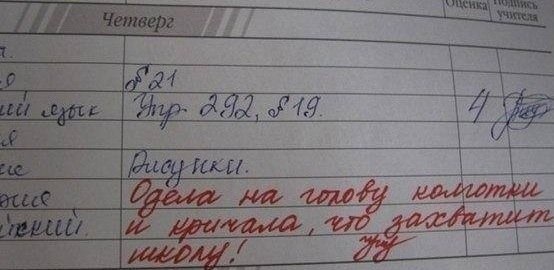 Четверг
Оценка
Подпись
учителя
§ 21
ий язык Упр 292, § 19. 4
Рисунки.
Одела на голову колготки
и кричала, что захватит
школу!